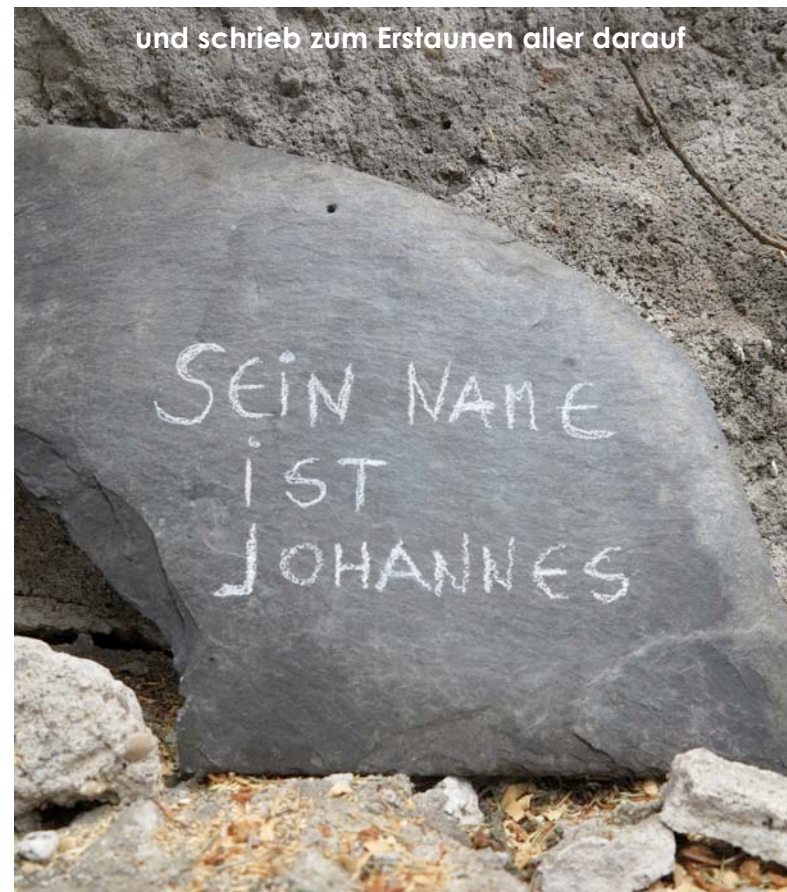 und schrieb zum Erstaunen aller darauf
SEiN NAME
iST
JOHANNES